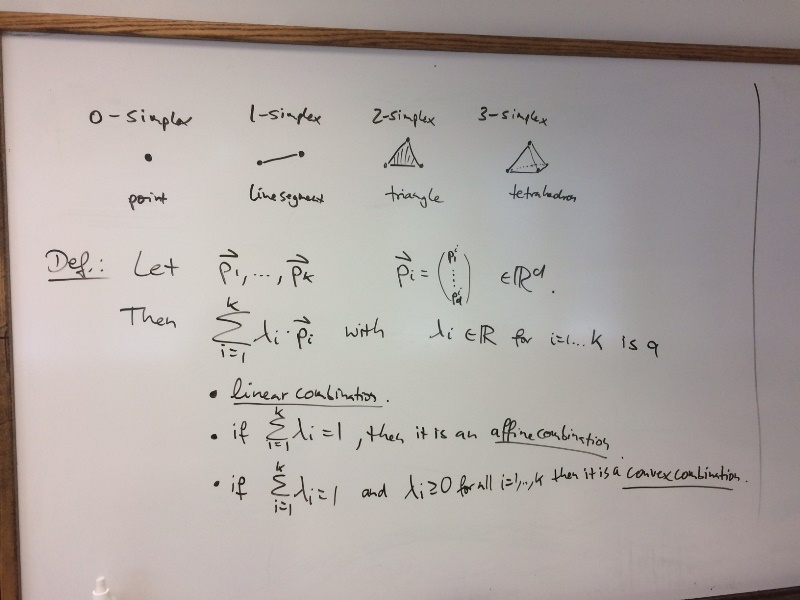 0-simplex 1-simplex 2-simplex 3-simplex
point line segment triangle tetrahedron
Def.: Let p⃗₁, ..., p⃗ₖ p⃗ᵢ = (p₁ⁱ ⋮ p_dⁱ) ∈ ℝᵈ.
Then ∑ᵢ₌₁ᵏ λᵢ · p⃗ᵢ with λᵢ ∈ ℝ for i=1...k is a
• linear combination.
• if ∑ᵢ₌₁ᵏ λᵢ = 1, then it is an affine combination.
• if ∑ᵢ₌₁ᵏ λᵢ = 1 and λᵢ ≥ 0 for all i=1,..,k then it is a convex combination.